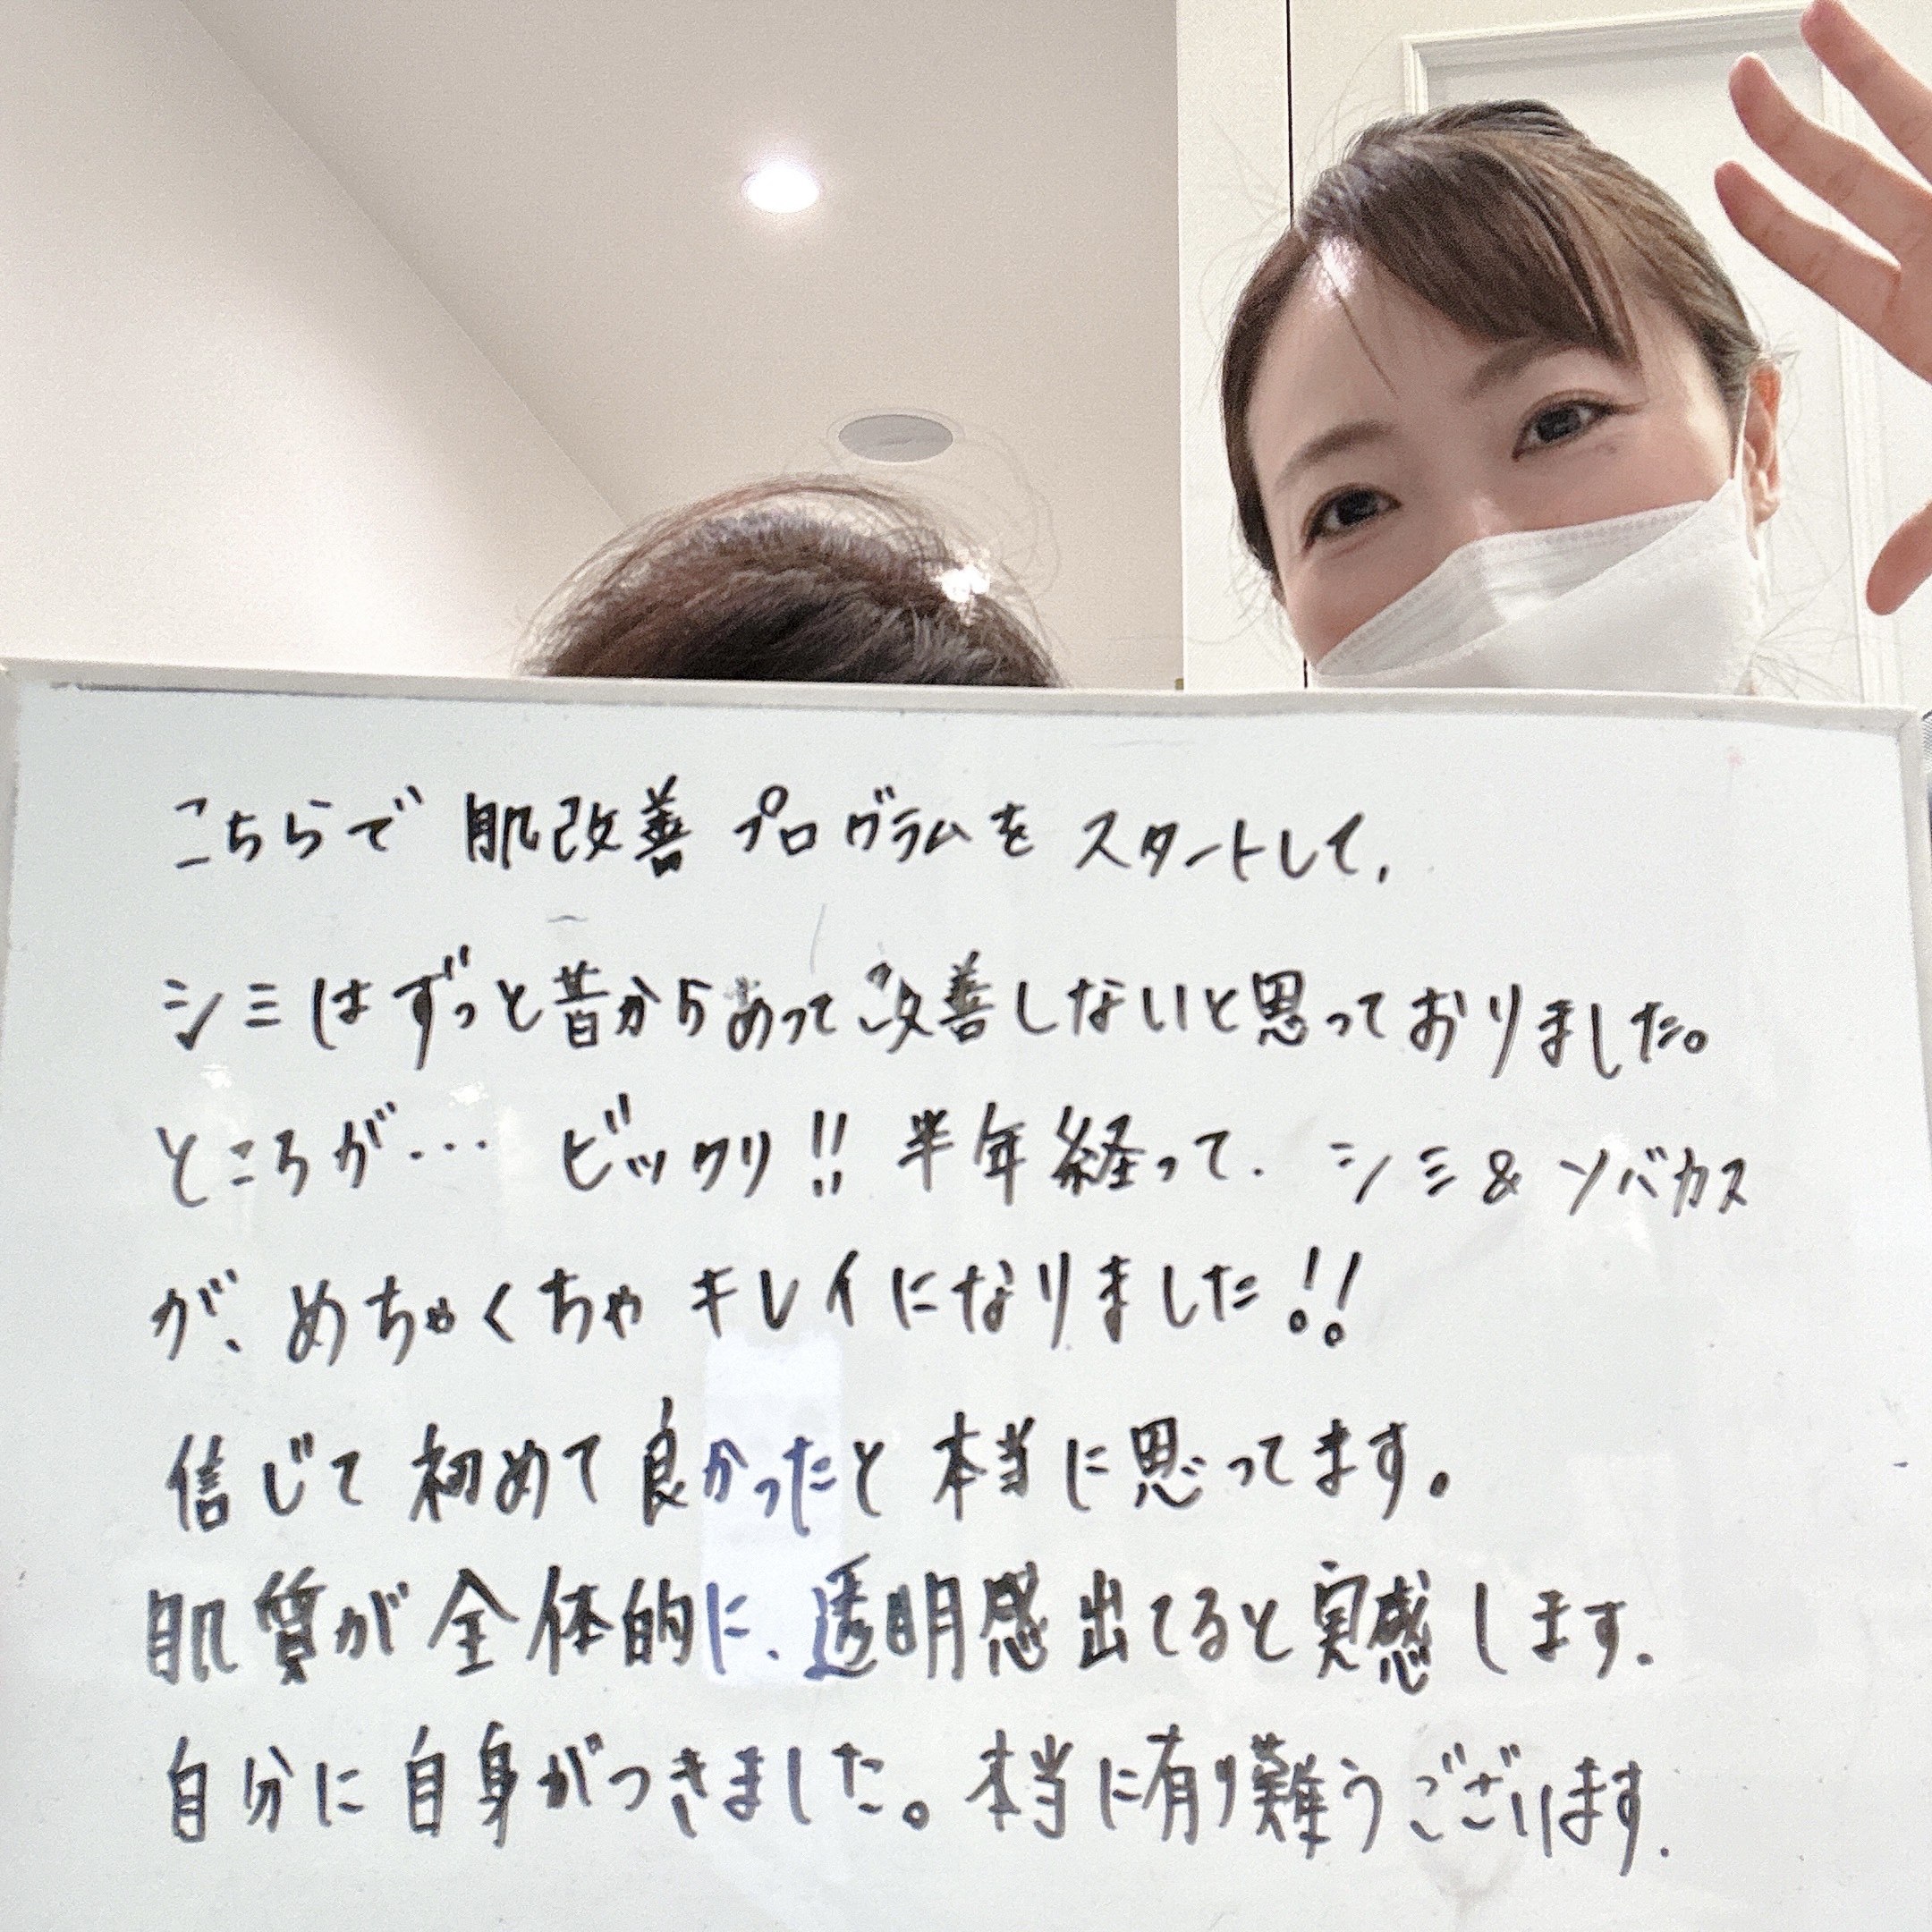 こちらで 肌改善 プログラムを スタートして、
シミはずっと昔からあって改善しないと思っておりました。
ところが… ビックリ!! 半年経って、シミ&ソバカス
が、めちゃくちゃキレイになりました!!
信じて初めて良かったと本当に思ってます。
肌質が全体的に、透明感出てると実感します。
自分に自身がつきました。本当に有り難うございます。